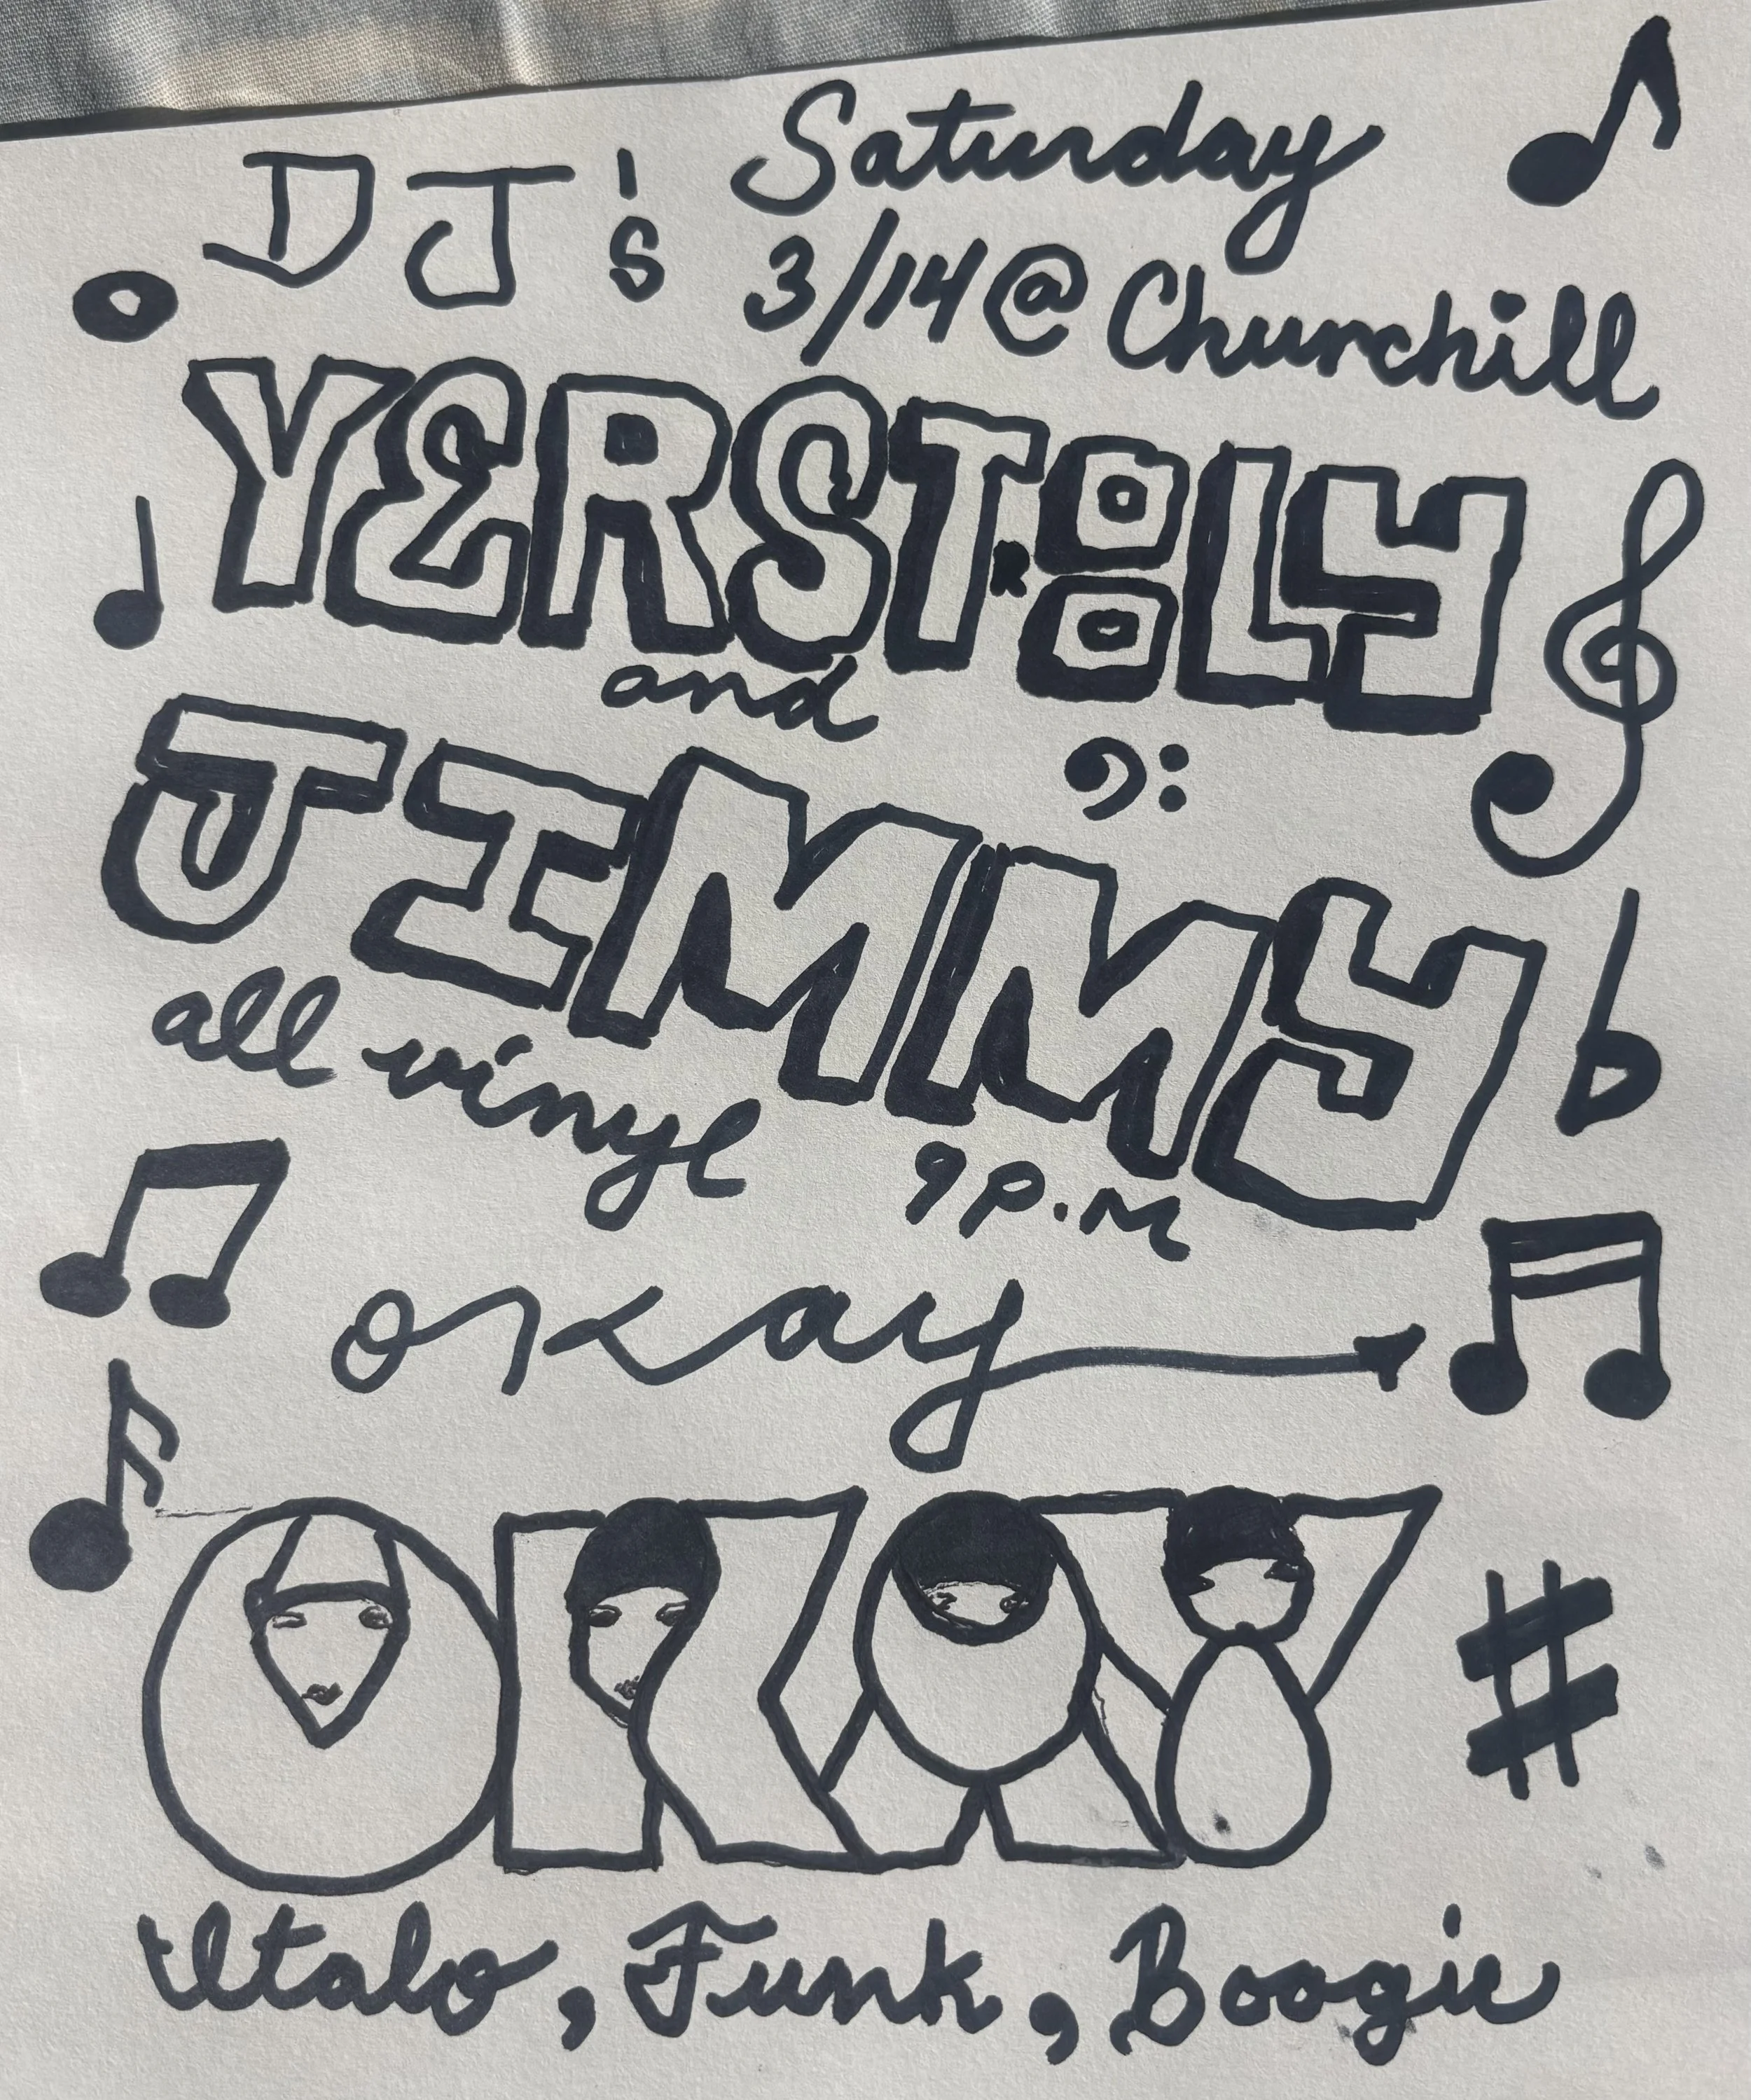 DJ's Saturday
3/14 @ Churchill
YERSTOOLY
and
JIMMY
all vinyl 9 P.M
okay
OKAY
Italo, Funk, Boogie